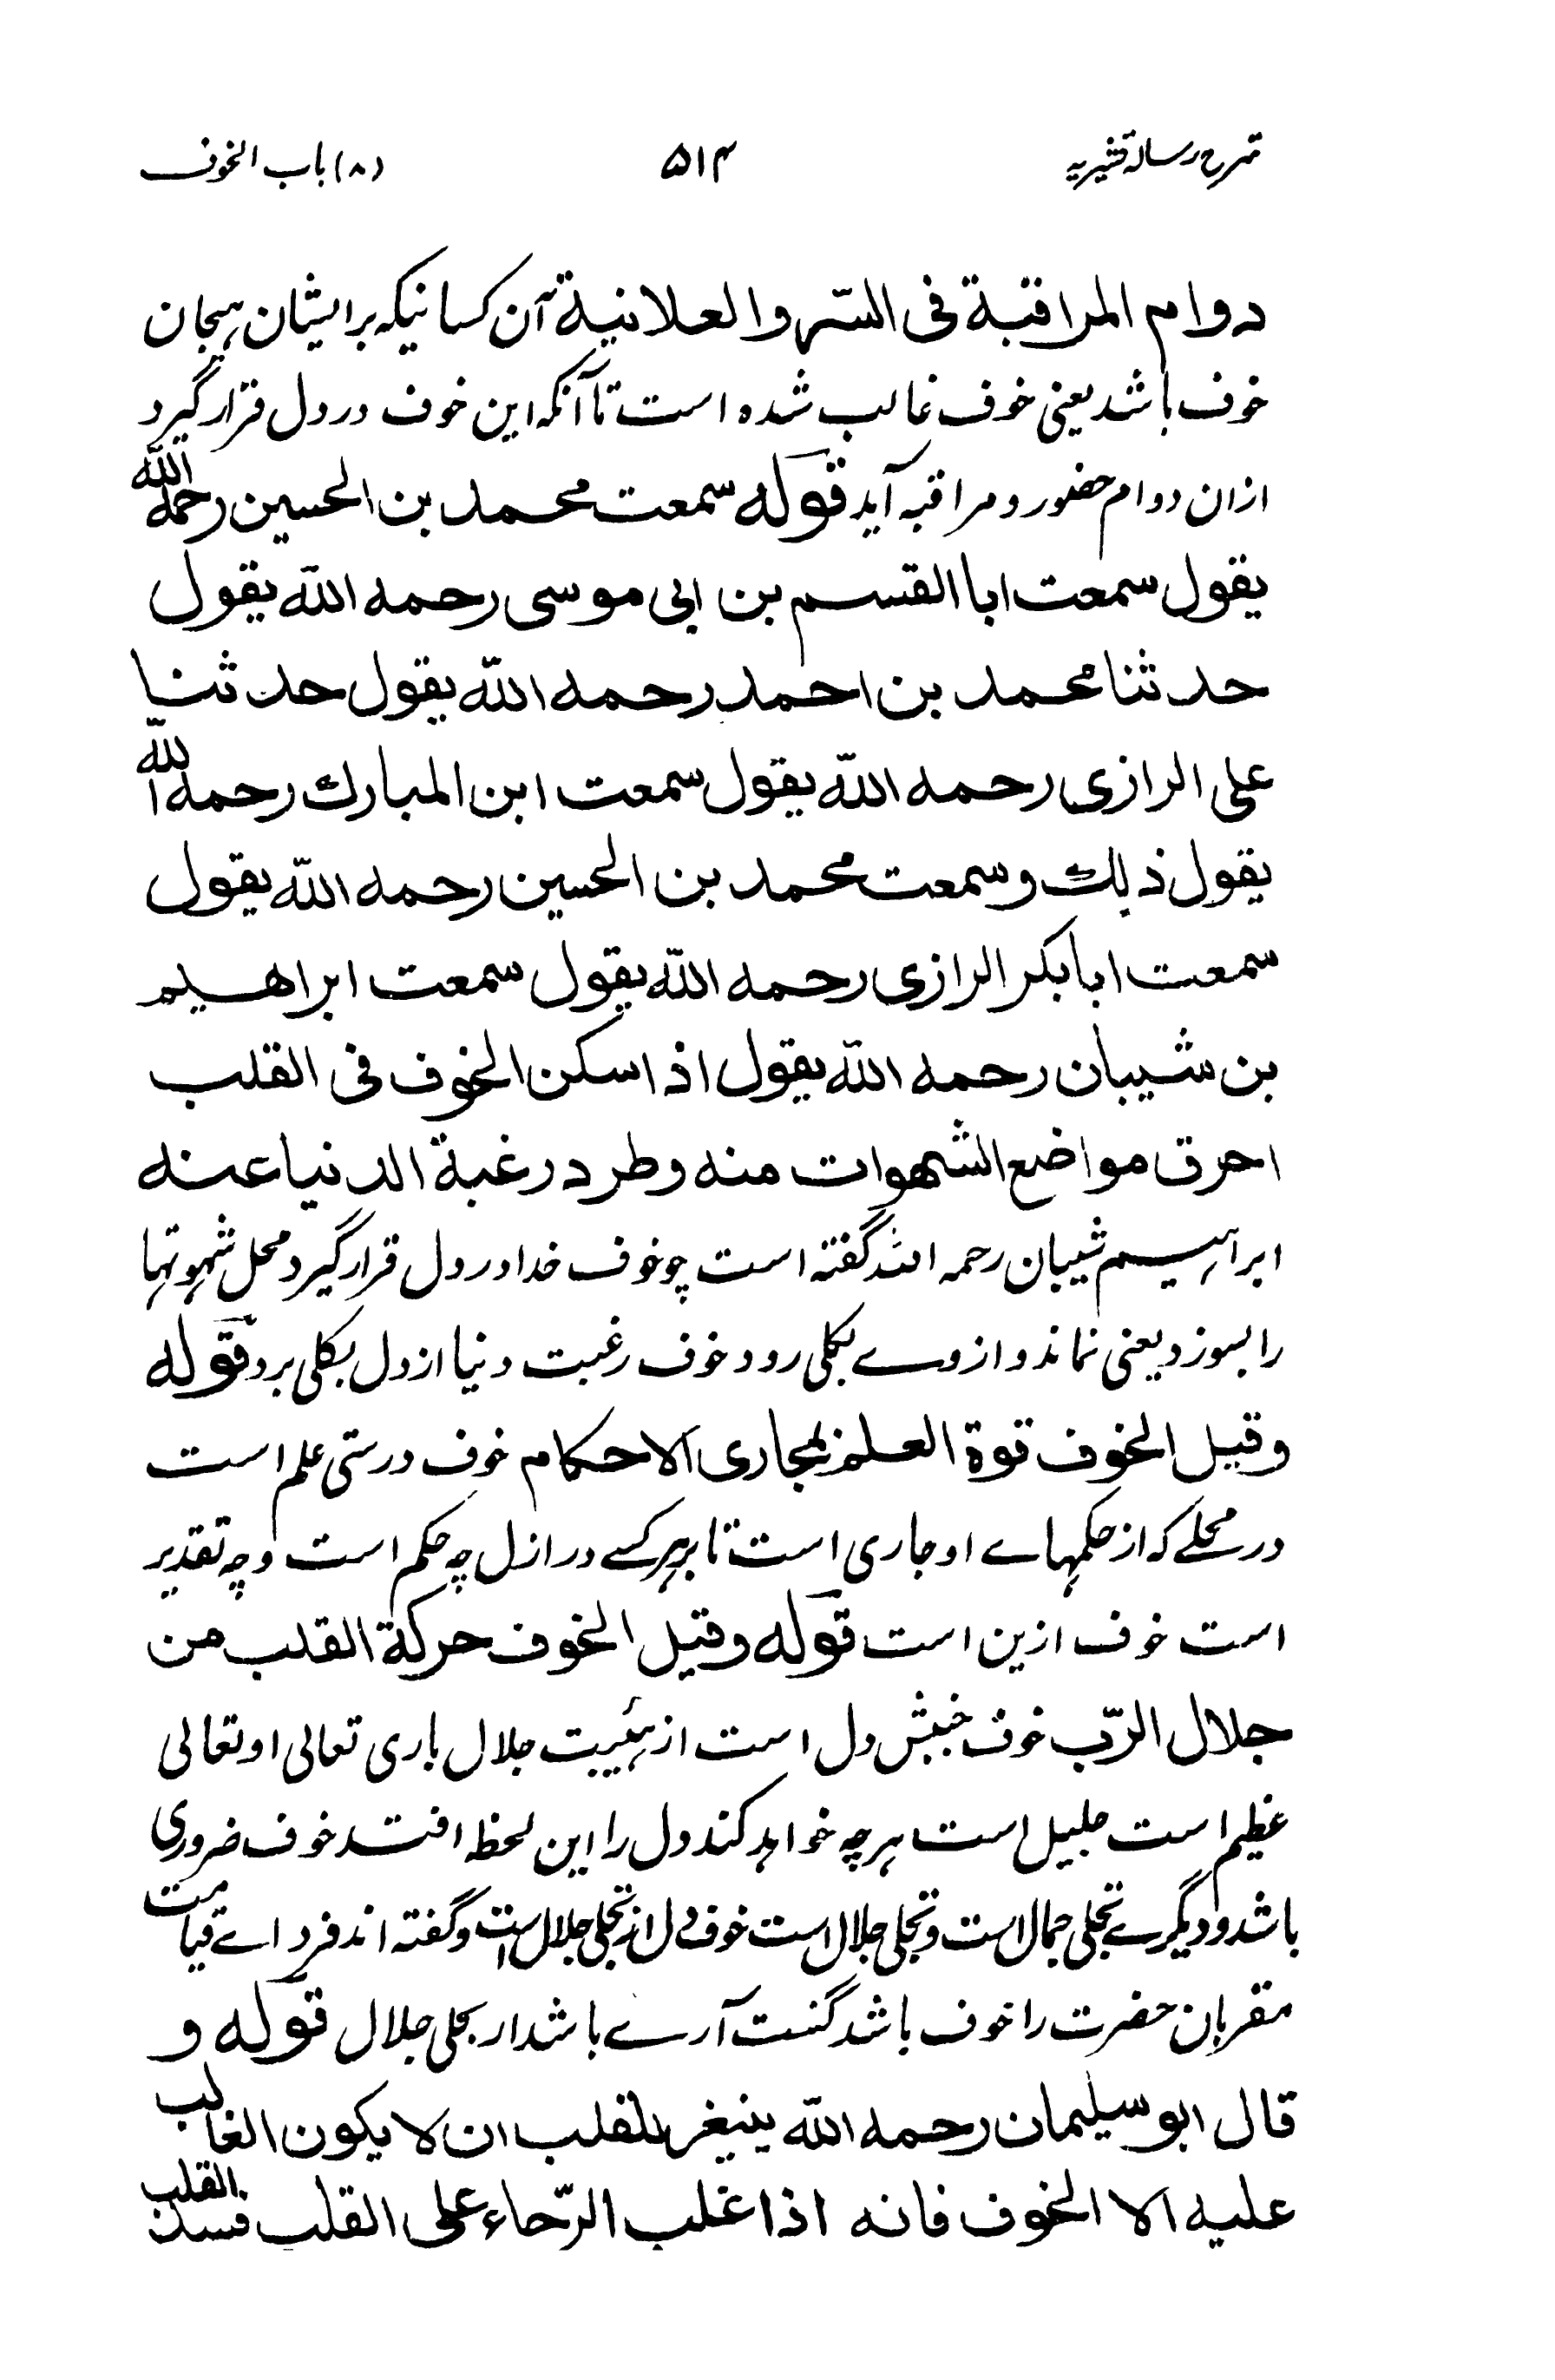 شرح رسالۀ قشیریه ۵۱۴ (۸) باب الخوف
دوام المراقبة فی السّر والعلانیة آن کسانیکه بر ایشان هیجان
خوف باشد یعنی خوف غالب شده است تا آنکه این خوف در دل قرار گیرد
ازان دوام حضور و مراقبه آید قوله سمعت محمد بن الحسین رحمه الله
یقول سمعت ابا القسم بن ابی موسی رحمه الله یقول
حدثنا محمد بن احمد رحمه الله یقول حدثنا
علی الرازی رحمه الله یقول سمعت ابن المبارك رحمه الله
یقول ذلك وسمعت محمد بن الحسین رحمه الله یقول
سمعت ابا بکر الرازی رحمه الله یقول سمعت ابراهیم
بن شیبان رحمه الله یقول اذا سکن الخوف فی القلب
احرق مواضع الشهوات منه وطرد رغبة الدنیا عنه
ابراهیم شیبان رحمه الله گفته است چو خوف خدا در دل قرار گیرد محل شهوتها
را بسوزد یعنی نماند و از وے بکلی رود خوف رغبت دنیا از دل بکلی برد قوله
وقیل الخوف قوة العلم بمجاری الاحکام خوف درستی علم است
در محلے که از حکمهاے او جاری است تا بر هر کسے در ازل چه حکم است و چه تقدیر
است خوف ازین است قوله وقیل الخوف حرکة القلب من
جلال الرّب خوف جنبش دل است از هیبت جلال باری تعالی او تعالی
عظیم است جلیل است هرچه خواهد کند دل را این لحظه افتد خوف ضروری
باشد و دیگرے تجلی جمال است و تجلی جلال است خوف دل از تجلی جلال است و گفته اند فرداے قیامت
مقربان حضرت را خوف باشد گفت آرے باشد از تجلی جلال قوله و
قال ابو سلیمان رحمه الله ینبغی للقلب ان لا یکون الغالب
علیه الا الخوف فانه اذا غلب الرّجاء علی القلب فسد القلب